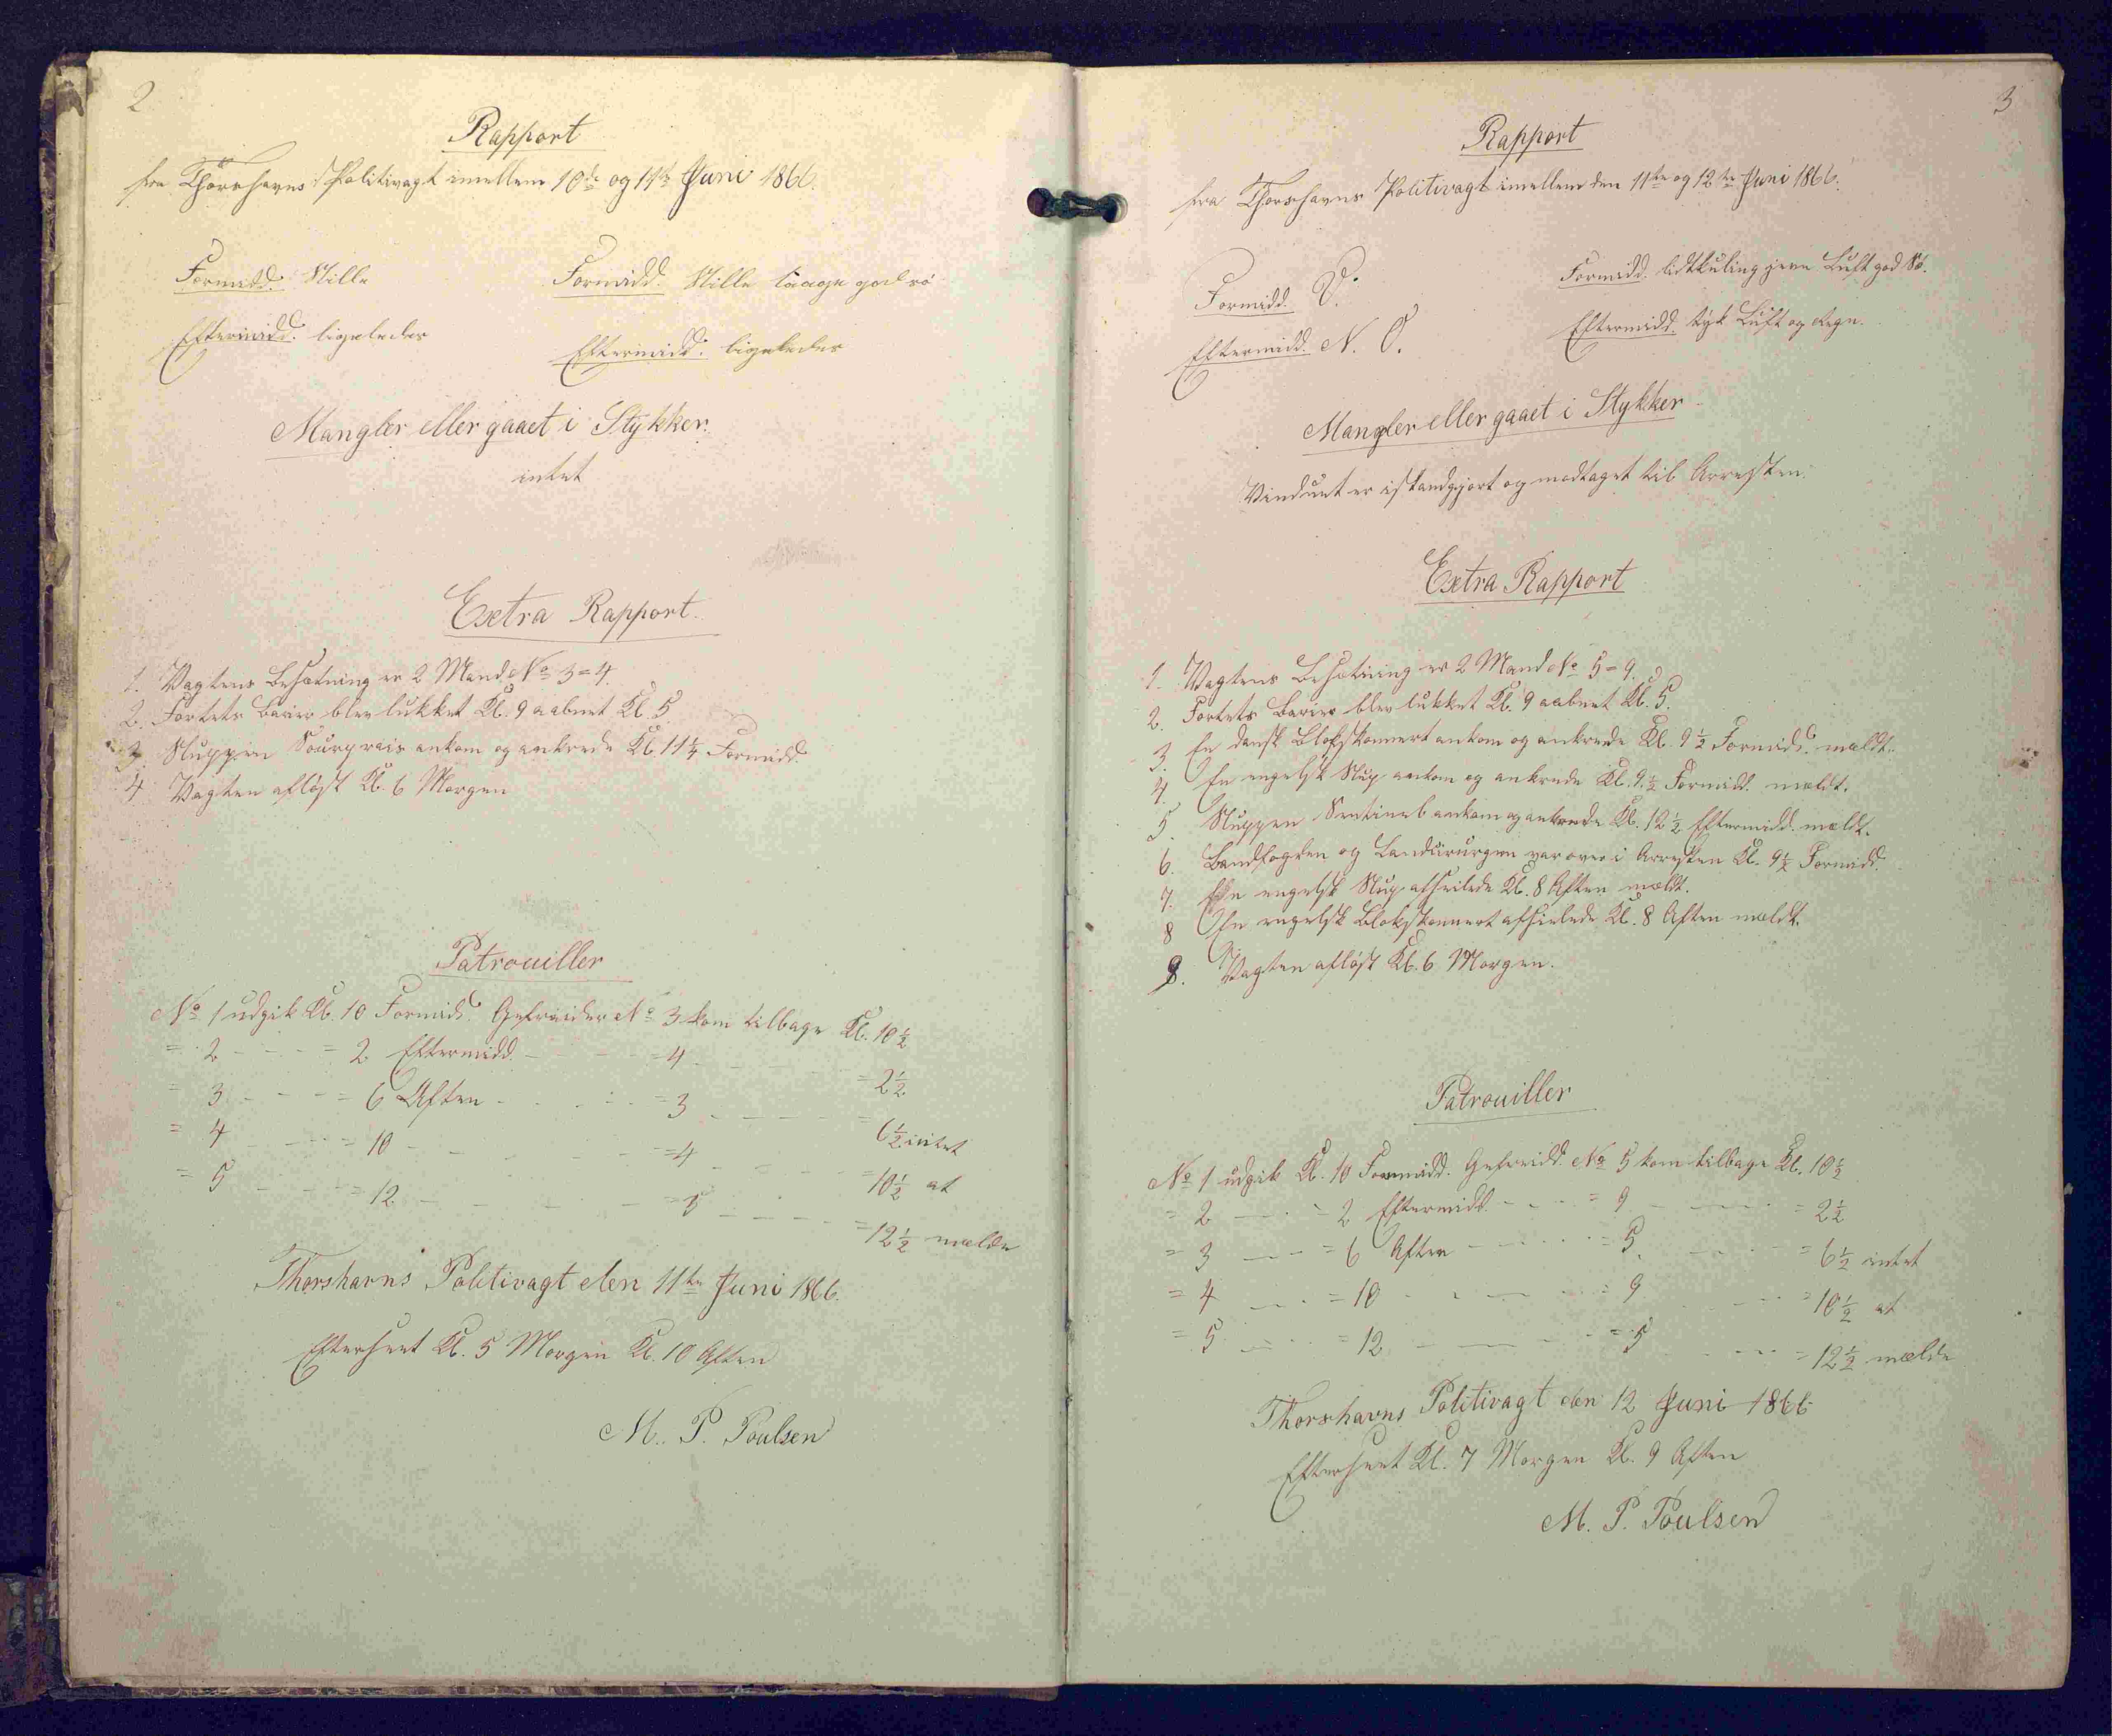 2
Rapport
fra Thorshavns Politivagt imellem 10de og 11te Juni 1866.
Formidd. Stille
Formidd. Stille taage god sö
Eftermidd. ligeledes
Eftermidd. ligeledes
Mangler eller gaaet i Stykker.
intet
Extra Rapport.
1. Vagtens Besætning er 2 Mand No 3=4.
2. Fortets Barier blev lukket Kl. 9 aabnet Kl. 5.
3. Sluppen ankom og ankrede Kl. 11 1/4 Formidd.
4. Vagten aflöst Kl. 6 Morgen
Patrouiller
No 1 udgik Kl. 10 Formidd. Gefreider No 3 kom tilbage Kl. 10 1/2
= 2 - - - = 2 Eftermidd. - - - = 4 - - - = 2 1/2
= 3 - - - = 6 Aften - - - = 3 - - - = 6 1/2 intet
= 4 - - - = 10 - - - = 4 - - - = 10 1/2 at
= 5 - - - = 12 - - - = 3 - - - = 12 1/2 melde
Thorshavns Politivagt den 11te Juni 1866.
Efterseet Kl. 5 Morgen Kl. 10 Aften
M. P. Poulsen
3
Rapport
fra Thorshavns Politivagt imellem den 11te og 12te Juni 1866.
Formidd. V.
Formidd. lidt kuling jevn Luft god Sö.
Eftermidd. N. O.
Eftermidd. tyk Luft og Regn.
Mangler eller gaaet i Stykker
Vinduet er istandgjort og modtaget til Arresten.
Extra Rapport
1. Vagtens Besætning er 2 Mand No 5=9.
2. Fortets Barier blev lukket Kl. 9 aabnet Kl. 5.
3. En dansk Blokskonnert ankom og ankrede Kl. 9 1/2 Formidd. meldt.
4. En engelsk Slup ankom og ankrede Kl. 9 1/2 Formidd. meldt.
5. Sluppen Sentinel ankom og ankrede Kl. 12 1/2 Eftermidd. meldt.
6. Landfogden og Landcirurgen var over i Arresten Kl. 9 1/2 Formidd.
7. En engelsk Slup afseilede Kl. 8 Aften meldt.
8 En engelsk Blokskonnert afseilede Kl. 8 Aften meldt.
9. Vagten aflöst Kl. 6 Morgen.
Patrouiller
No 1 udgik Kl. 10 Formidd. Gefreidd. No 5 kom tilbage Kl. 10 1/2
= 2 - - - = 2 Eftermidd. - - - = 9 - - - = 2 1/2
= 3 - - - = 6 Aften - - - = 5 - - - = 6 1/2 intet
= 4 - - - = 10 - - - = 9 - - - = 10 1/2 at
= 5 - - - = 12 - - - = 5 - - - = 12 1/2 melde
Thorshavns Politivagt den 12 Juni 1866
Efterseet Kl. 7 Morgen Kl. 9 Aften
M. P. Poulsen